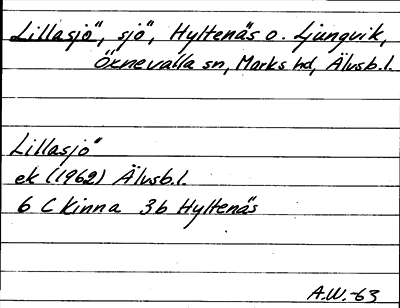 Lillasjö, sjö, Hyltenäs o. Ljungvik,
Öxnevalla sn, Marks hd, Älvsb.l.
Lillasjö
ek (1962) Älvsb.l.
6 C Kinna 3b Hyltenäs
A.W.-63